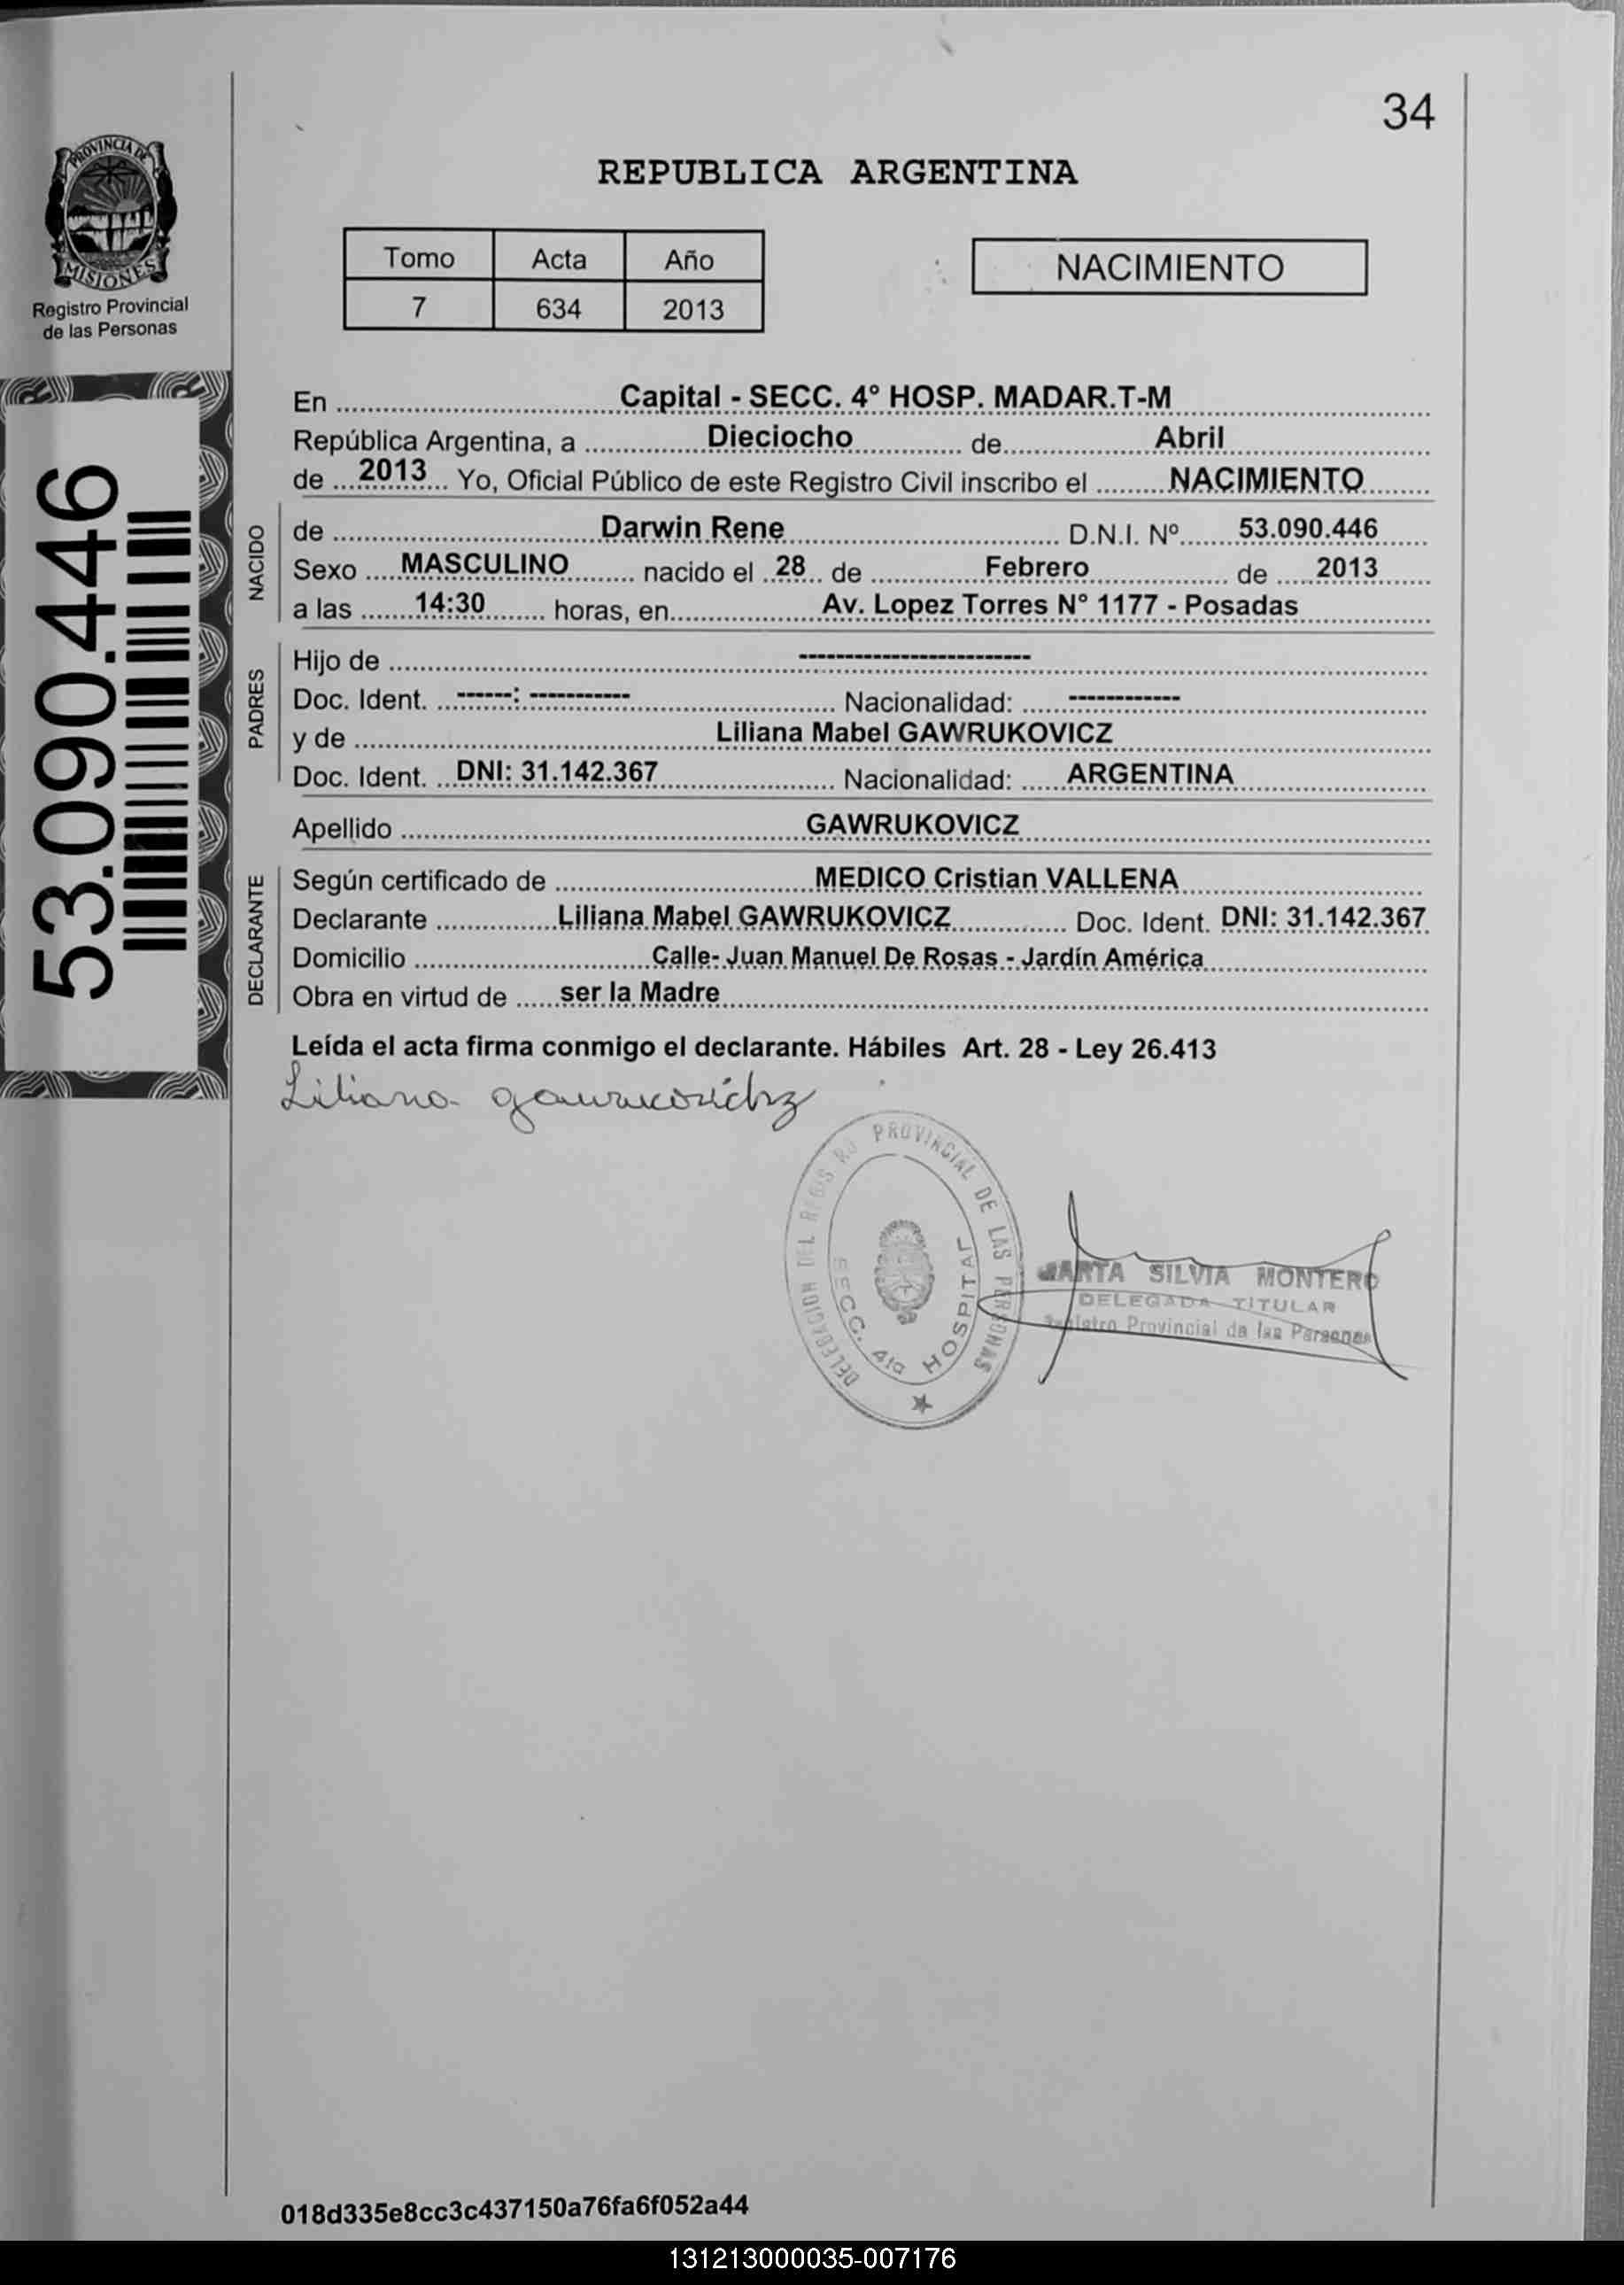 34
PROVINCIA DE
MISIONES
Registro Provincial
de las Personas
53.090.446
REPUBLICA ARGENTINA
Tomo Acta Año
7 634 2013
NACIMIENTO
En Capital - SECC. 4º HOSP. MADAR.T-M
República Argentina, a Dieciocho de Abril
de 2013 Yo, Oficial Público de este Registro Civil inscribo el NACIMIENTO
NACIDO
de Darwin Rene D.N.I. Nº 53.090.446
Sexo MASCULINO nacido el 28 de Febrero de 2013
a las 14:30 horas, en Av. Lopez Torres N° 1177 - Posadas
PADRES
Hijo de -------------------------
Doc. Ident. ------: ----------- Nacionalidad: ------------
y de Liliana Mabel GAWRUKOVICZ
Doc. Ident. DNI: 31.142.367 Nacionalidad: ARGENTINA
Apellido GAWRUKOVICZ
DECLARANTE
Según certificado de MEDICO Cristian VALLENA
Declarante Liliana Mabel GAWRUKOVICZ Doc. Ident. DNI: 31.142.367
Domicilio Calle- Juan Manuel De Rosas - Jardín América
Obra en virtud de ser la Madre
Leída el acta firma conmigo el declarante. Hábiles Art. 28 - Ley 26.413
Liliana
DELEGACION DEL REGISTRO PROVINCIAL DE LAS PERSONAS
SECC. 4ta HOSPITAL
MARTA SILVIA MONTERO
DELEGADA TITULAR
Registro Provincial de las Personas
018d335e8cc3c437150a76fa6f052a44
131213000035-007176